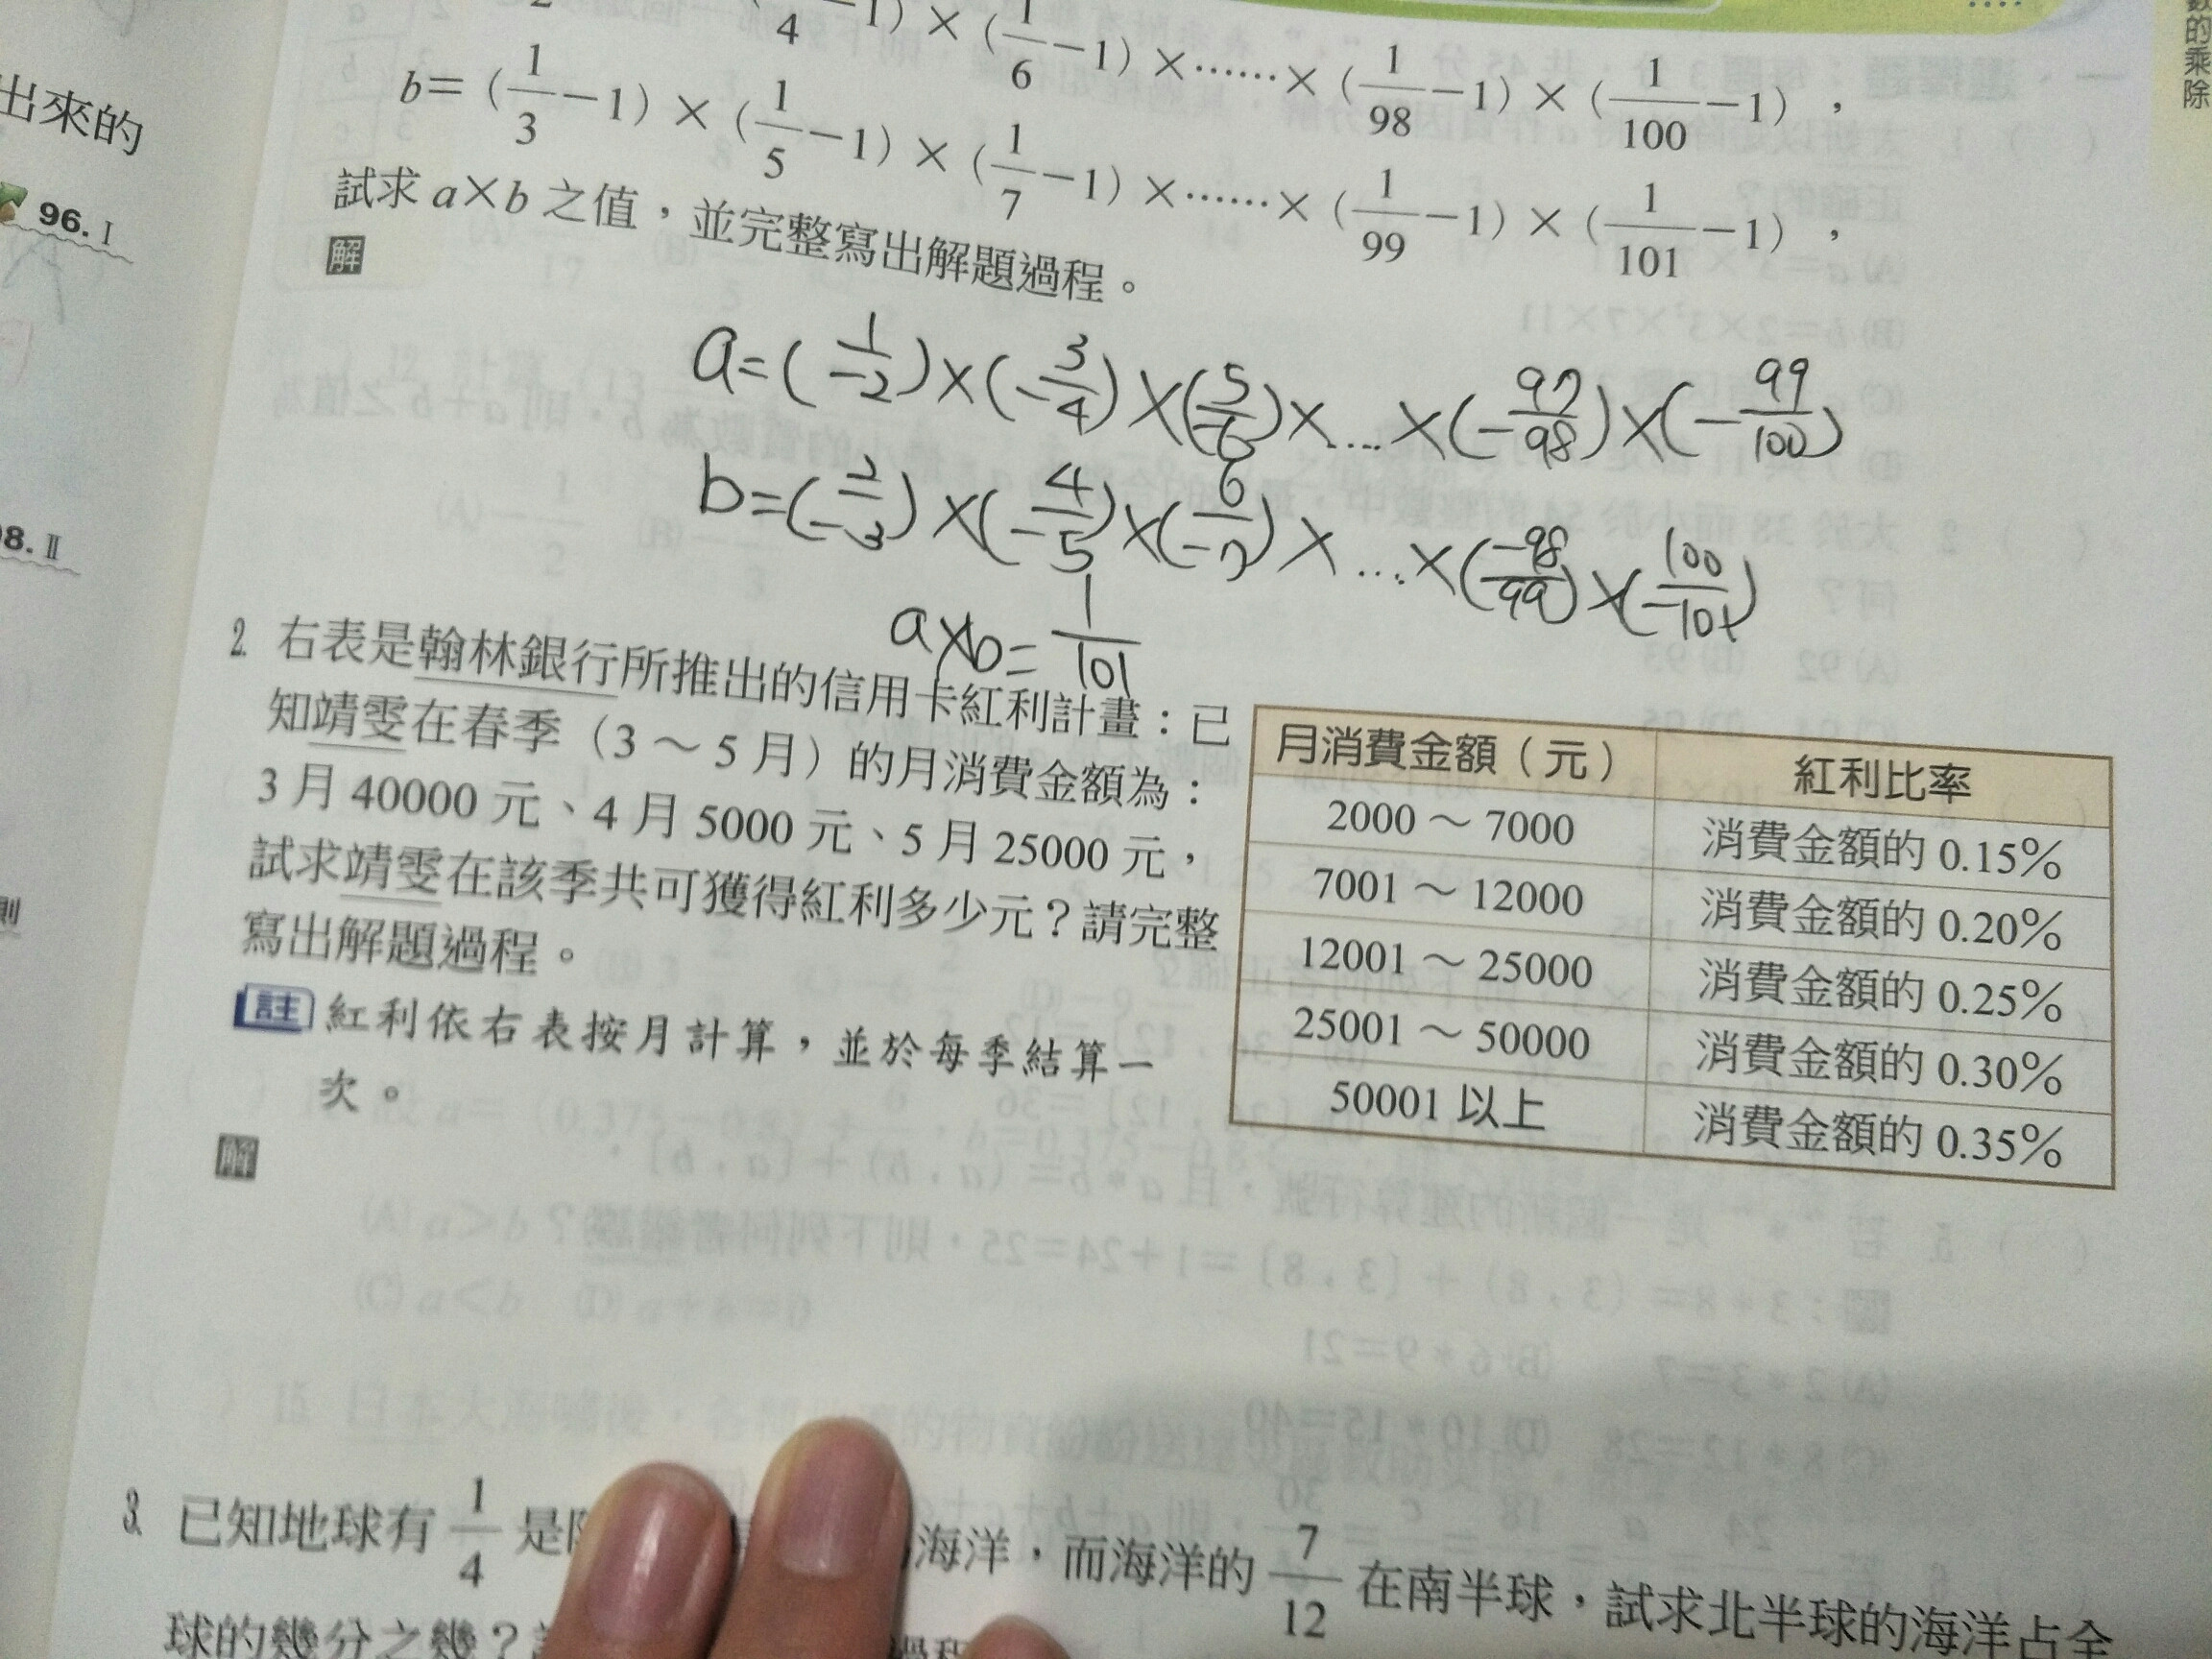 數的乘除
出來的
96. I
8. II
則
4 −1) × (1/6 −1) ×……× (1/98 −1) × (1/100 −1) ，
b= (1/3 −1) × (1/5 −1) × (1/7 −1) ×……× (1/99 −1) × (1/101 −1) ，
試求 a×b 之值，並完整寫出解題過程。
解
a=(1/−2)×(−3/4)×(5/−6)×....×(−97/98)×(−99/100)
b=(2/−3)×(−4/5)×(6/−7)×...×(−98/99)×(100/−101)
a×b=1/101
2. 右表是翰林銀行所推出的信用卡紅利計畫：已
知靖雯在春季（3～5月）的月消費金額為：
3月40000元、4月5000元、5月25000元，
試求靖雯在該季共可獲得紅利多少元？請完整
寫出解題過程。
註 紅利依右表按月計算，並於每季結算一
次。
月消費金額（元） 紅利比率
2000～7000 消費金額的 0.15%
7001～12000 消費金額的 0.20%
12001～25000 消費金額的 0.25%
25001～50000 消費金額的 0.30%
50001以上 消費金額的 0.35%
解
3. 已知地球有 1/4 是 海洋，而海洋的 7/12 在南半球，試求北半球的海洋占全
球的幾分之幾？ 過程